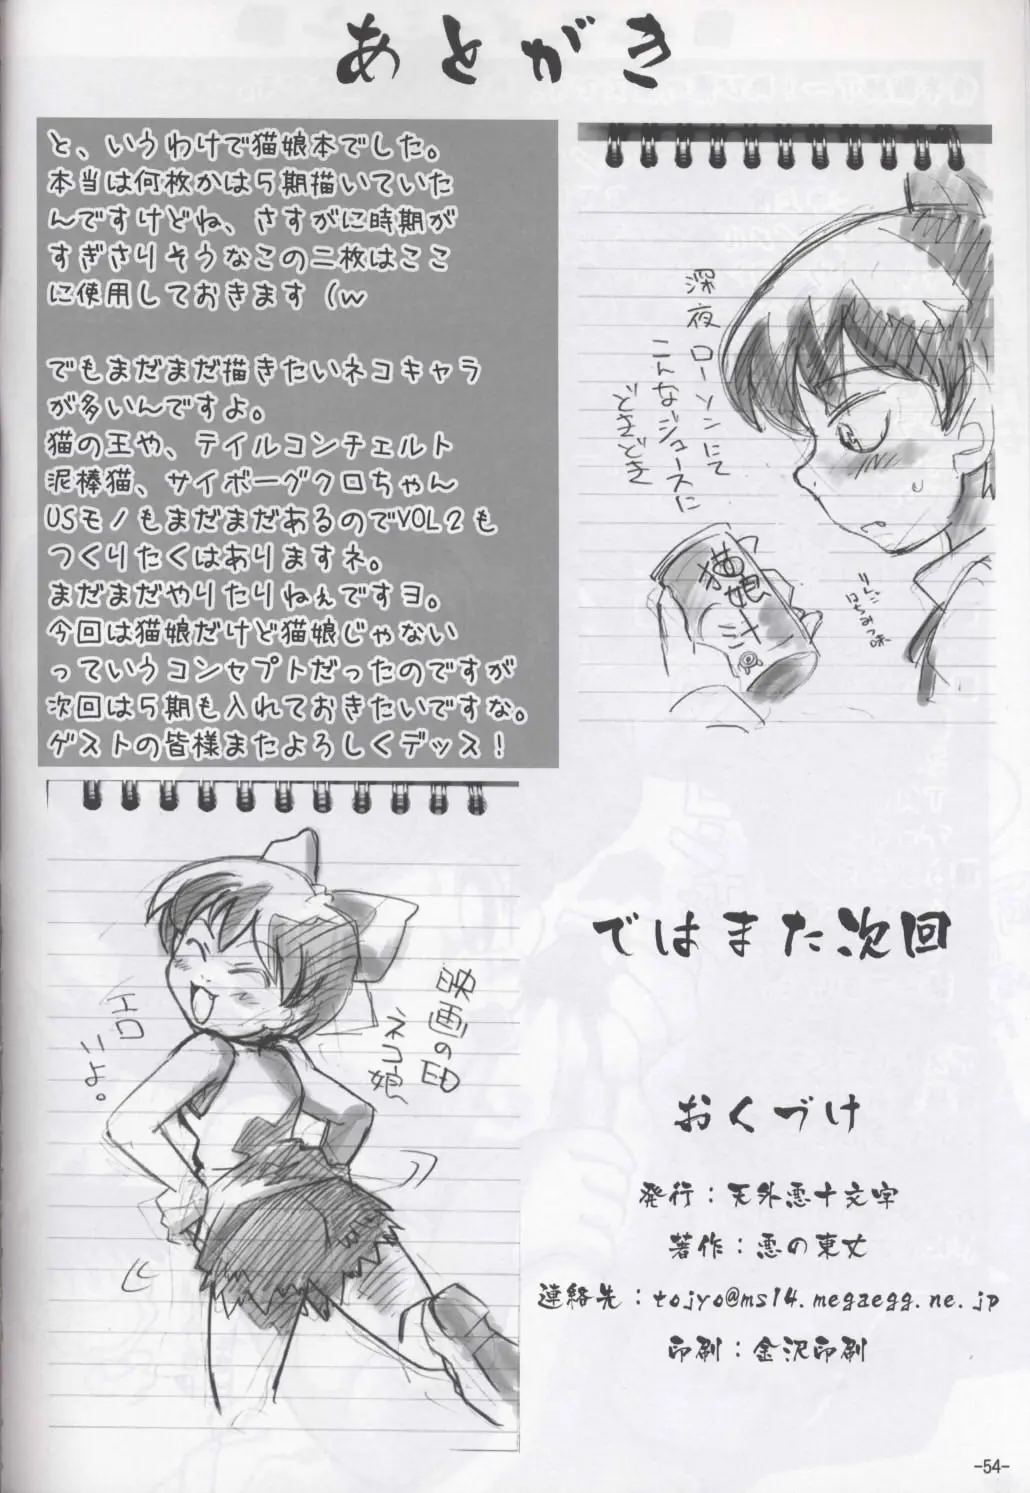 あとがき
と、いうわけで猫娘本でした。
本当は何枚かは5期描いていた
んですけどね、さすがに時期が
すぎさりそうなこの二枚はここ
に使用しておきます(w
でもまだまだ描きたいネコキャラ
が多いんですよ。
猫の王や、テイルコンチェルト
泥棒猫、サイボーグクロちゃん
USモノもまだまだあるのでVOL2も
つくりたくはありますネ。
まだまだやりたりねぇですヨ。
今回は猫娘だけど猫娘じゃない
っていうコンセプトだったのですが
次回は5期も入れておきたいですな。
ゲストの皆様またよろしくデッス!
深夜ローソンにて
こんなジュースに
どきどき
猫娘
りんご
はちみつ味
映画のED
ネコ娘
エロ
いよ。
ではまた次回
おくづけ
発行:天外悪十文字
著作:悪の東丈
連絡先:tojyo@ms14.megaegg.ne.jp
印刷:金沢印刷
-54-